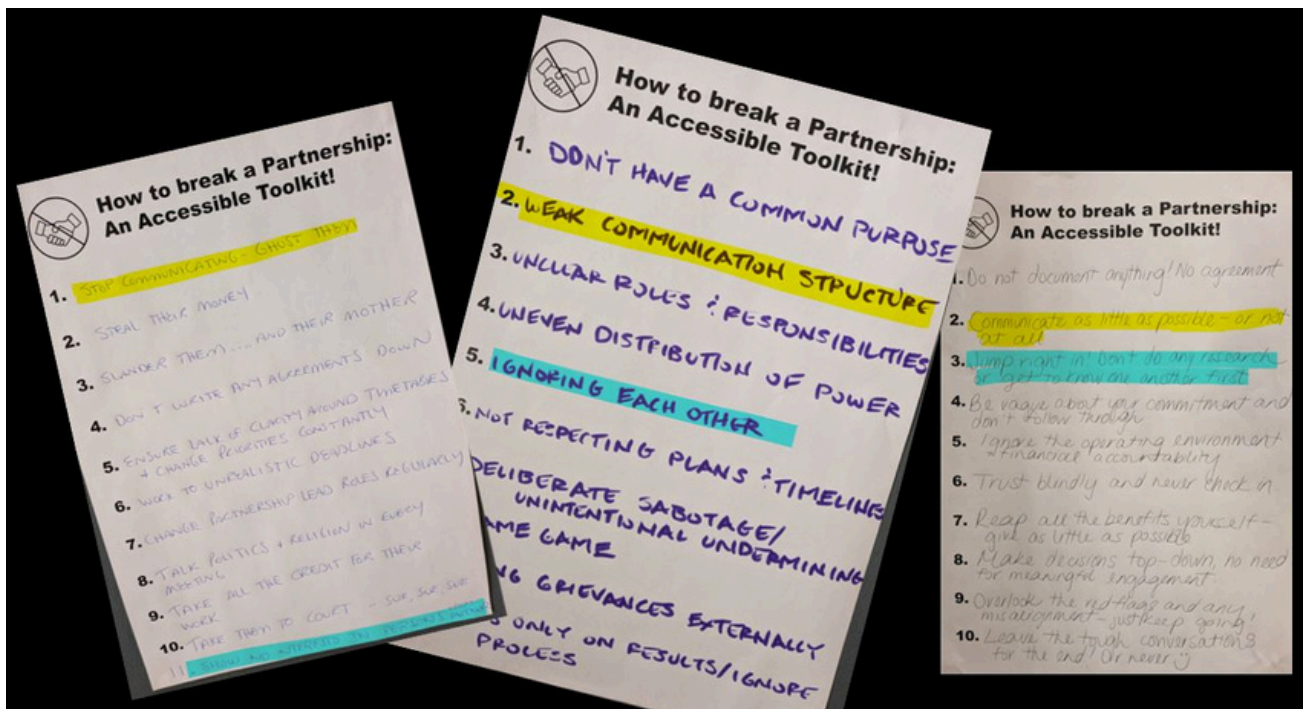 How to break a Partnership:
An Accessible Toolkit!
1. STOP COMMUNICATING - GHOST THEM
2. STEAL THEIR MONEY
3. SLANDER THEM... AND THEIR MOTHER
4. DON'T WRITE ANY AGREEMENTS DOWN
5. ENSURE LACK OF CLARITY AROUND TIMETABLES
+ CHANGE PRIORITIES CONSTANTLY
6. WORK TO UNREALISTIC DEADLINES
7. CHANGE PARTNERSHIP LEAD ROLES REGULARLY
8. TALK POLITICS + RELIGION IN EVERY
MEETING
9. TAKE ALL THE CREDIT FOR THEIR
WORK
10. TAKE THEM TO COURT - SUE, SUE, SUE
11. SHOW NO INTEREST IN
How to break a Partnership:
An Accessible Toolkit!
1. DON'T HAVE A COMMON PURPOSE
2. WEAK COMMUNICATION STRUCTURE
3. UNCLEAR ROLES & RESPONSIBILITIES
4. UNEVEN DISTRIBUTION OF POWER
5. IGNORING EACH OTHER
6. NOT RESPECTING PLANS & TIMELINES
DELIBERATE SABOTAGE/
UNINTENTIONAL UNDERMINING
AME GAME
NG GRIEVANCES EXTERNALLY
S ONLY ON RESULTS/IGNORE
PROCESS
How to break a Partnership:
An Accessible Toolkit!
1. Do not document anything! No agreement
2. Communicate as little as possible - or not
at all
3. Jump right in! Don't do any research
or get to know one another first
4. Be vague about your commitment and
don't follow through
5. Ignore the operating environment
+ financial accountability
6. Trust blindly and never check in
7. Reap all the benefits yourself -
give as little as possible
8. Make decisions top-down, no need
for meaningful engagement
9. Overlook the red flags and any
misalignment - just keep going!
10. Leave the tough conversations
for the end! Or never